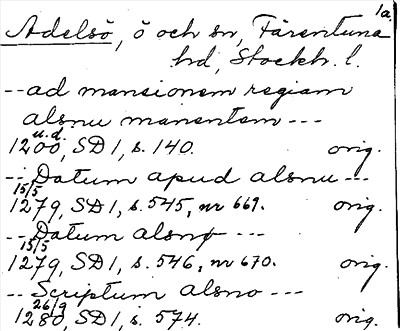 1a
Adelsö, ö och sn, Färentuna
hd, Stockh. l.
-- ad mansionem regiam
alsnu manentem ---
u.d.
1200, SD 1, s. 140. orig.
-- Datum apud alsnu ---
15/5
1279, SD 1, s. 545, nr 669. orig.
-- Datum alsnø ---
15/5
1279, SD 1, s. 546, nr 670. orig.
-- Scriptum alsno ---
26/9
1280, SD 1, s. 574. orig.